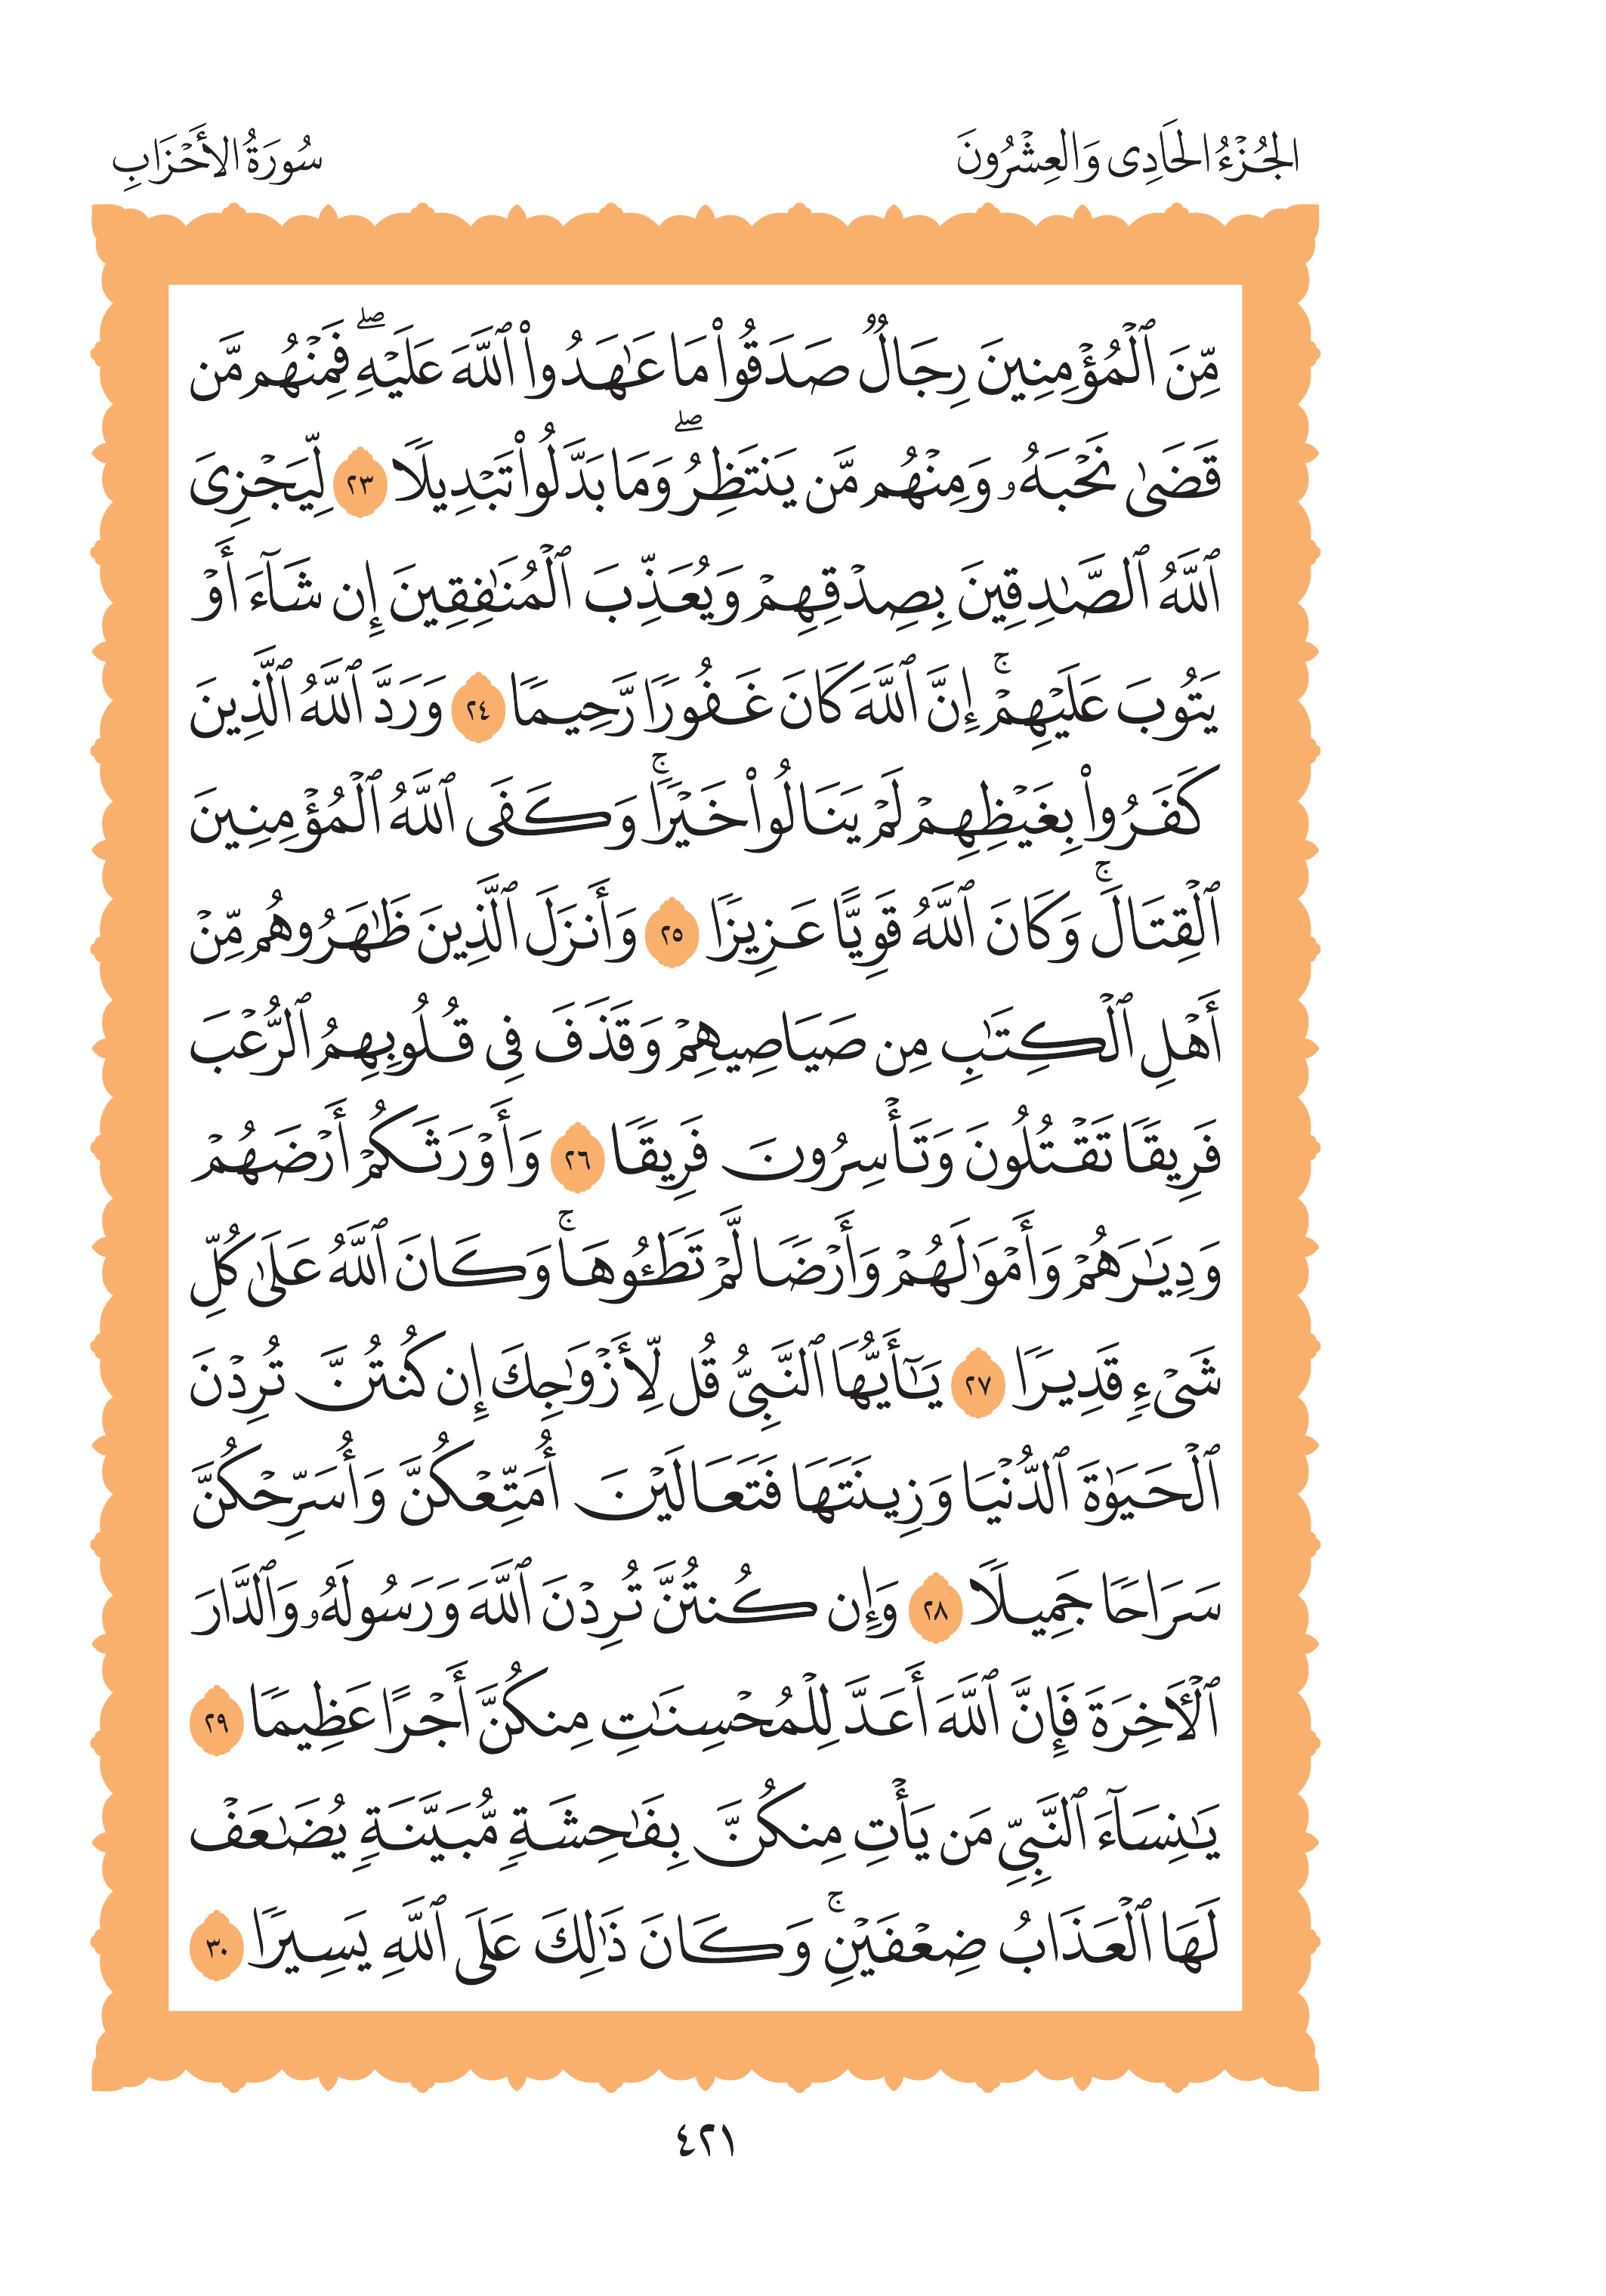 الجُزْءُ الحَادِى وَالعِشْرُونَ
سُورَةُ الأَحْزَابِ
مِّنَ ٱلْمُؤْمِنِينَ رِجَالٌ صَدَقُوا۟ مَا عَـٰهَدُوا۟ ٱللَّهَ عَلَيْهِ ۖ فَمِنْهُم مَّن
قَضَىٰ نَحْبَهُۥ وَمِنْهُم مَّن يَنتَظِرُ ۖ وَمَا بَدَّلُوا۟ تَبْدِيلًا ٢٣ لِّيَجْزِىَ
ٱللَّهُ ٱلصَّـٰدِقِينَ بِصِدْقِهِمْ وَيُعَذِّبَ ٱلْمُنَـٰفِقِينَ إِن شَآءَ أَوْ
يَتُوبَ عَلَيْهِمْ ۚ إِنَّ ٱللَّهَ كَانَ غَفُورًا رَّحِيمًا ٢٤ وَرَدَّ ٱللَّهُ ٱلَّذِينَ
كَفَرُوا۟ بِغَيْظِهِمْ لَمْ يَنَالُوا۟ خَيْرًا ۚ وَكَفَى ٱللَّهُ ٱلْمُؤْمِنِينَ
ٱلْقِتَالَ ۚ وَكَانَ ٱللَّهُ قَوِيًّا عَزِيزًا ٢٥ وَأَنزَلَ ٱلَّذِينَ ظَـٰهَرُوهُم مِّنْ
أَهْلِ ٱلْكِتَـٰبِ مِن صَيَاصِيهِمْ وَقَذَفَ فِى قُلُوبِهِمُ ٱلرُّعْبَ
فَرِيقًا تَقْتُلُونَ وَتَأْسِرُونَ فَرِيقًا ٢٦ وَأَوْرَثَكُمْ أَرْضَهُمْ
وَدِيَـٰرَهُمْ وَأَمْوَٰلَهُمْ وَأَرْضًا لَّمْ تَطَـُٔوهَا ۚ وَكَانَ ٱللَّهُ عَلَىٰ كُلِّ
شَىْءٍ قَدِيرًا ٢٧ يَـٰٓأَيُّهَا ٱلنَّبِىُّ قُل لِّأَزْوَٰجِكَ إِن كُنتُنَّ تُرِدْنَ
ٱلْحَيَوٰةَ ٱلدُّنْيَا وَزِينَتَهَا فَتَعَالَيْنَ أُمَتِّعْكُنَّ وَأُسَرِّحْكُنَّ
سَرَاحًا جَمِيلًا ٢٨ وَإِن كُنتُنَّ تُرِدْنَ ٱللَّهَ وَرَسُولَهُۥ وَٱلدَّارَ
ٱلْـَٔاخِرَةَ فَإِنَّ ٱللَّهَ أَعَدَّ لِلْمُحْسِنَـٰتِ مِنكُنَّ أَجْرًا عَظِيمًا ٢٩
يَـٰنِسَآءَ ٱلنَّبِىِّ مَن يَأْتِ مِنكُنَّ بِفَـٰحِشَةٍ مُّبَيِّنَةٍ يُضَـٰعَفْ
لَهَا ٱلْعَذَابُ ضِعْفَيْنِ ۚ وَكَانَ ذَٰلِكَ عَلَى ٱللَّهِ يَسِيرًا ٣٠
٤٢١